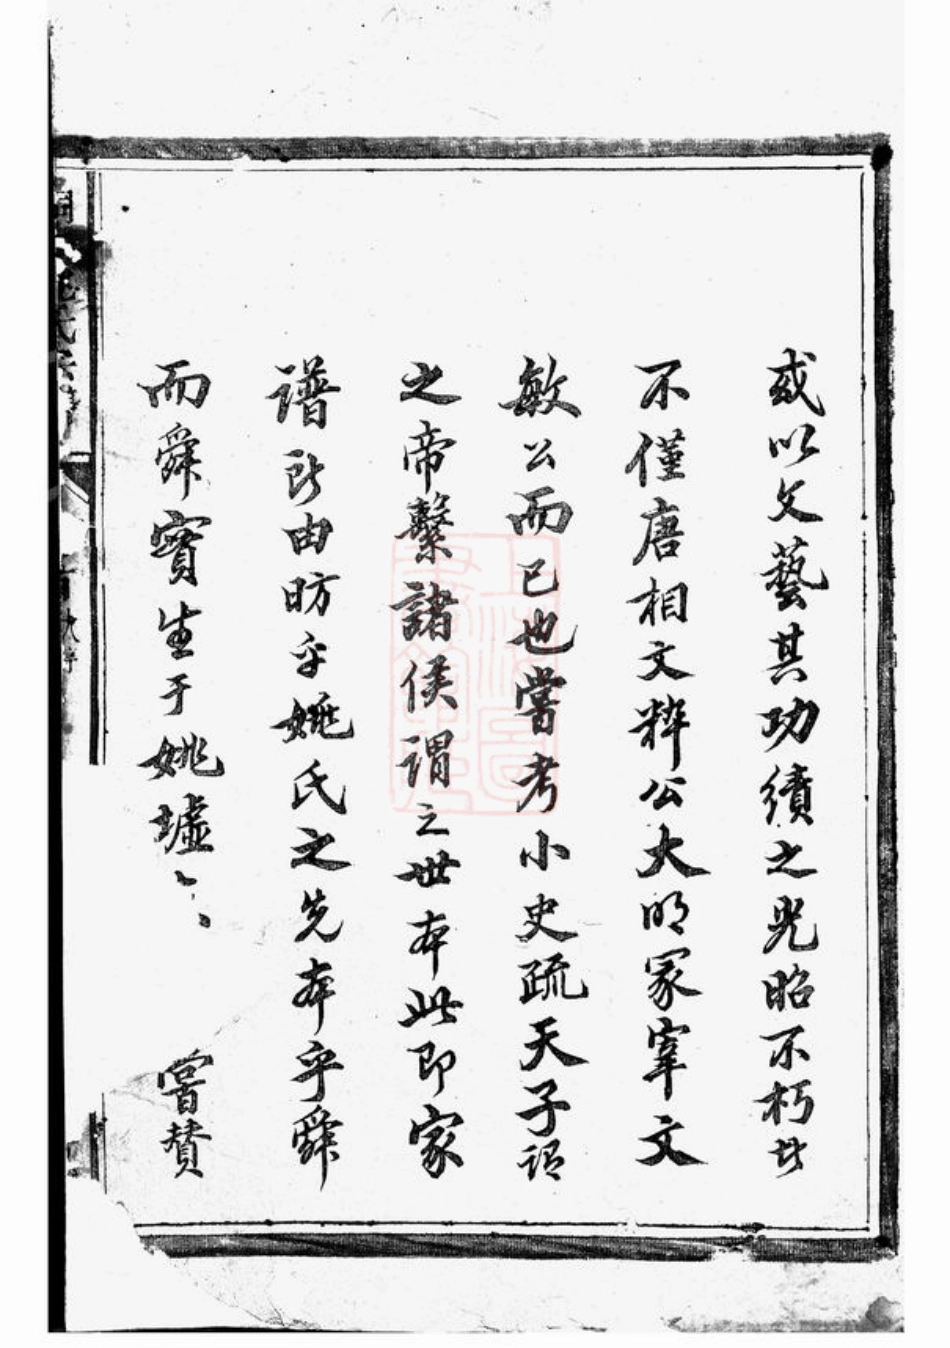 或以文藝其功績之光昭不朽者
不僅唐相文粹公大明冢宰文
敏公而已也嘗考小史疏天子謂
之帝繫諸侯謂之世本此即家
譜所由昉乎姚氏之先本乎舜
而舜實生于姚墟
嘗贊
姚氏宗譜
大序
上海圖書館藏